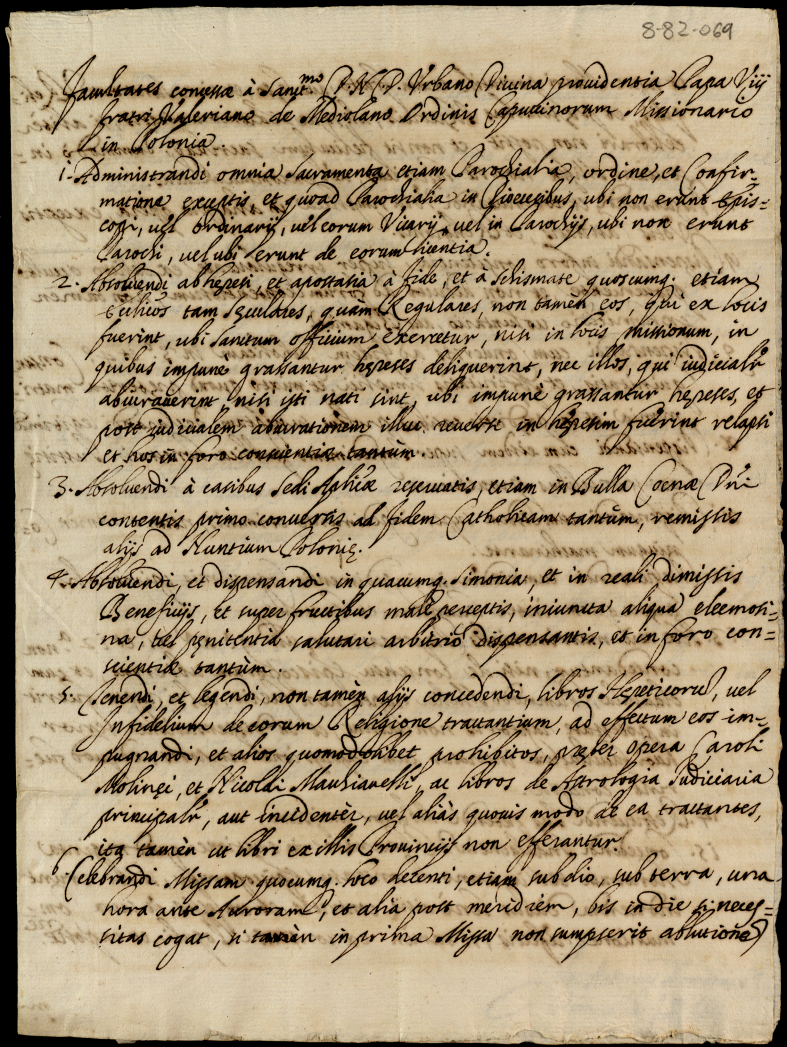 8-82-069
Facultates concessæ à Sanct.mo D.N.D. Urbano Divina providentia Papa Viij
fratri Valeriano de Mediolano Ordinis Capucinorum Missionario
in Polonia.
1. Administrandi omnia Sacramenta etiam Parochialia, ordine, et Confir=
matione exceptis, et quoad Parochialia in Diœcesibus, ubi non erunt Epis=
copi, vel ordinarij, vel eorum Vicarij, vel in Parochijs, ubi non erunt
Parochi, vel ubi erunt de eorum licentia.
2. Absolvendi ab hęresi, et apostasia à fide, et à schismate quoscumq. etiam
Ecclicos tam Sęculares, quàm Regulares, non tamèn eos, qui ex locis
fuerint, ubi Sanctum officium exercetur, nisi in locis missionum, in
quibus impunè grassantur hęreses deliquerint, nec illos, qui iudicialr
abiuraverint, nisi isti nati sint, ubi impunè grassantur hęreses, et
post iudicialem abiurationem illuc reversi in hęresim fuerint relapsi
et hos in foro conscientiæ tantùm.
3. Absolvendi à casibus Sedi Aplicæ reservatis, etiam in Bulla Coenæ Dni
contentis primo conversis ad fidem Catholicam tantùm, remissis
alijs ad Nuntium Polonię.
4. Absolvendi, et dispensandi in quacumq. simonia, et in reali dimissis
Beneficijs, et super fructibus malè perceptis, iniuncta aliqua eleemosi=
na, vel pęnitentia salutari arbitrio dispensantis, et in foro con=
scientiæ tantùm.
5. Tenendi, et legendi, non tamèn alijs concedendi, libros Hęreticorũ, vel
Infidelium de eorum Religione tractantium, ad effectum eos im=
pugnandi, et alios quomodolibet prohibitos, pręter opera Caroli
Molinęi, et Nicolai Machiavelli, ac libros de Astrologia Judiciaria
principalr, aut incidentèr, vel aliàs quovis modo de ea tractantes,
ita tamèn ut libri ex illis Provincijs non efferantur.
6. Celebrandi Missam quocumq. loco decenti, etiam sub dio, sub terra, una
hora ante Auroram, et alia post meridiem, bis in die si neces=
sitas cogat, si tamèn in prima Missa non sumpserit ablutionẽ